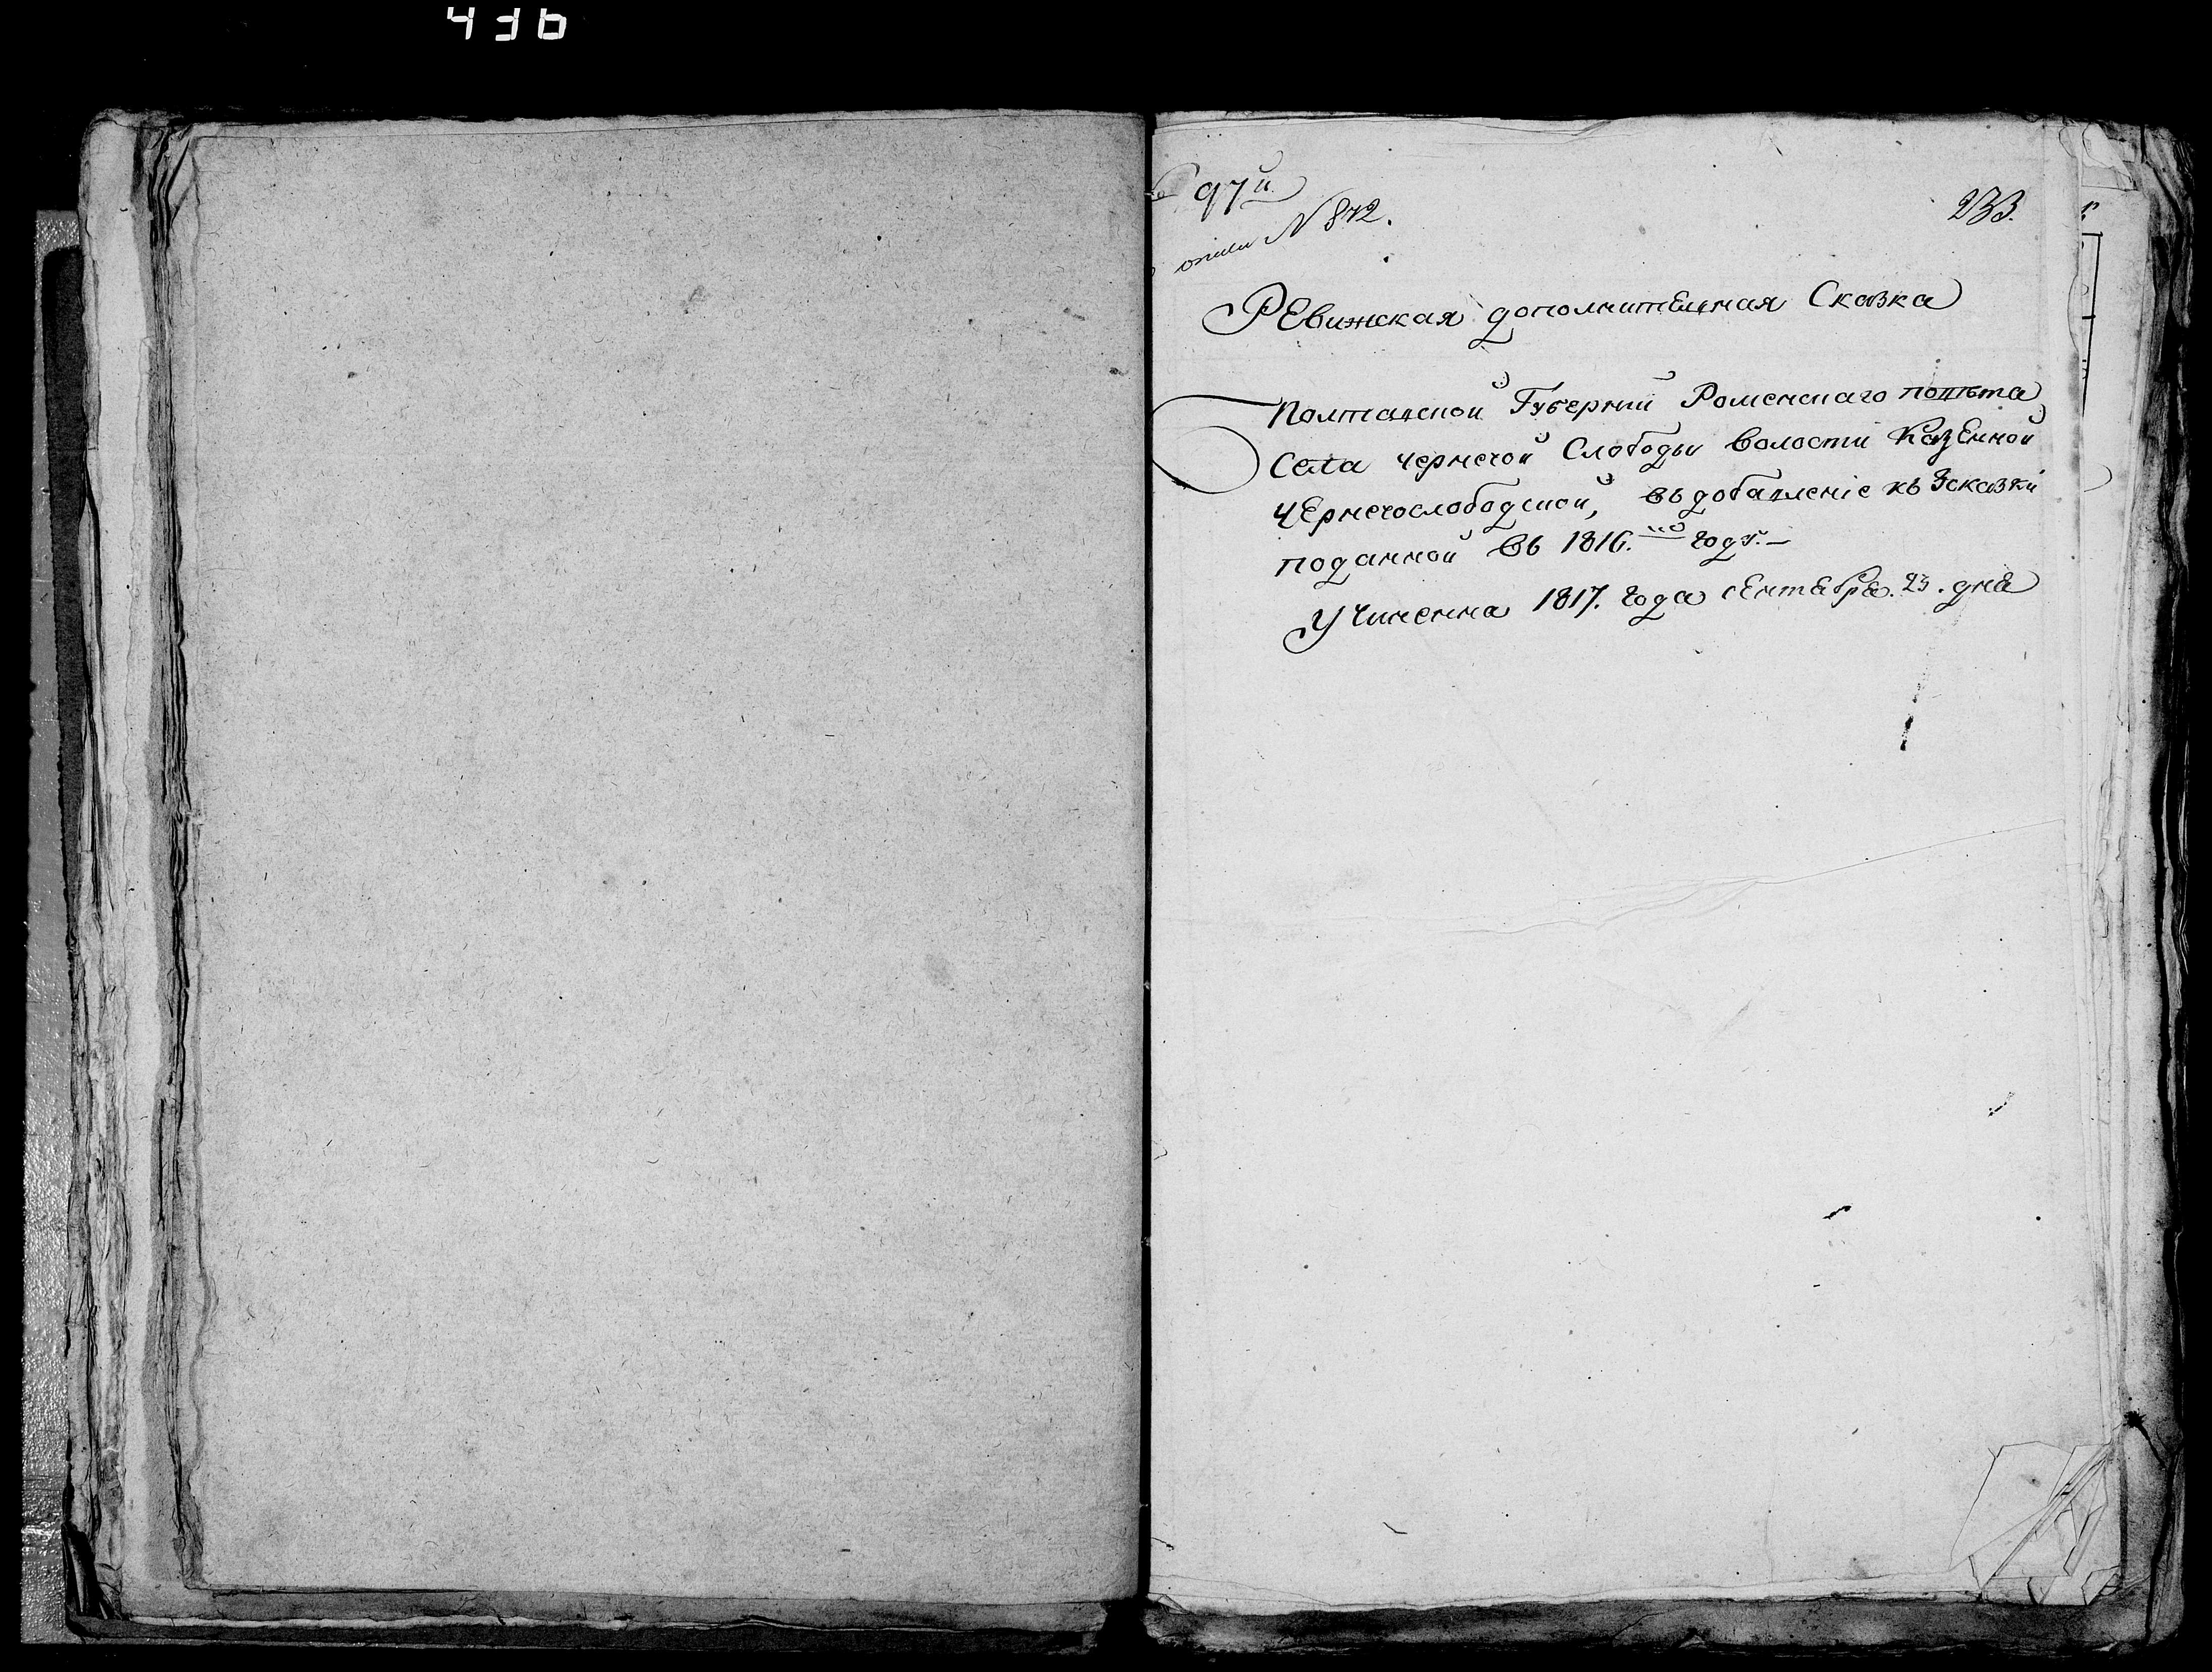 436
97й
233.
N 872.
РЕвижская дополнителная Сказка
Полтавской Губернии Роменскаго повѣта
Села чернечой Слободы волости КазЕнной
чЕрнечослободской, въ добавленіе къ сказки
поданной въ 1816.мъ году.–
Учиненна 1817. года сЕнтебре. 23. дне